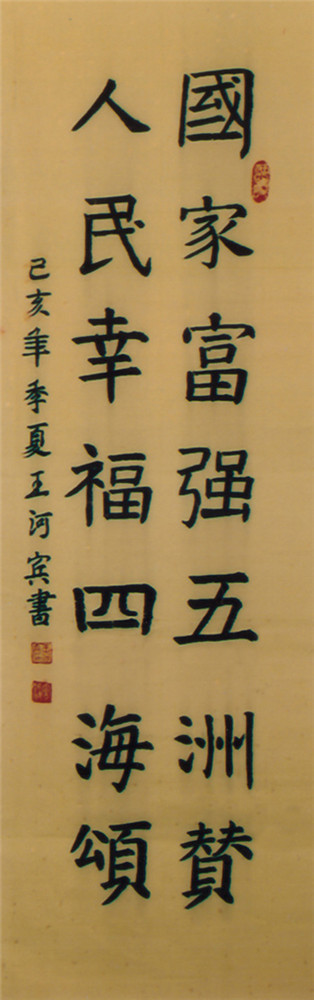 國家富强五洲賛
人民幸福四海頌
己亥年季夏王河宾書